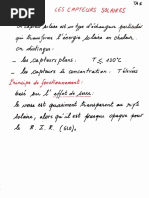 TA 6
LES CAPTEURS SOLAIRES
Un capteur solaire est un type d'échangeur particulier
qui transforme l'énergie solaire en chaleur.
On distingue :
- les capteurs plans : T ≤ 120°C
- les capteurs à concentration : T élevées
Principe de fonctionnement :
basé sur l'effet de serre
le verre est quasiment transparent au rayt
solaire, alors qu'il est presque opaque
pour le R.I.R. (GLO).